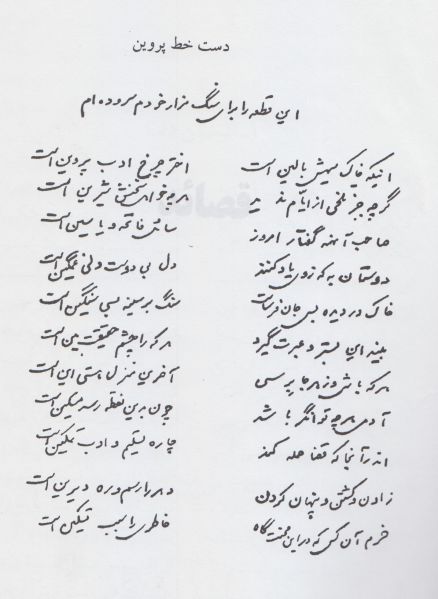 دست خط پروین
این قطعه را برای سنگ مزار خودم سروده ام
اینکه خاک سیهش بالین است اختر چرخ ادب پروین است
گرچه جز تلخی از ایام ندید هر چه خواهی سخنش شیرین است
صاحب آنهمه گفتار امروز سائل فاتحه و یاسین است
دوستان به که ز وی یاد کنند دل بی دوست دلی غمگین است
خاک در دیده بسی جان فرساست سنگ بر سینه بسی سنگین است
بیند این بستر و عبرت گیرد هر که را چشم حقیقت بین است
هر که باشی و ز هر جا برسی آخرین منزل هستی این است
آدمی هر چه توانگر باشد چون بدین نقطه رسد مسکین است
اندر آنجا که قضا حمله کند چاره تسلیم و ادب تمکین است
زادن و کشتن و پنهان کردن دهر را رسم و ره دیرین است
خرم آن کس که در این محنت گاه خاطری را سبب تسکین است